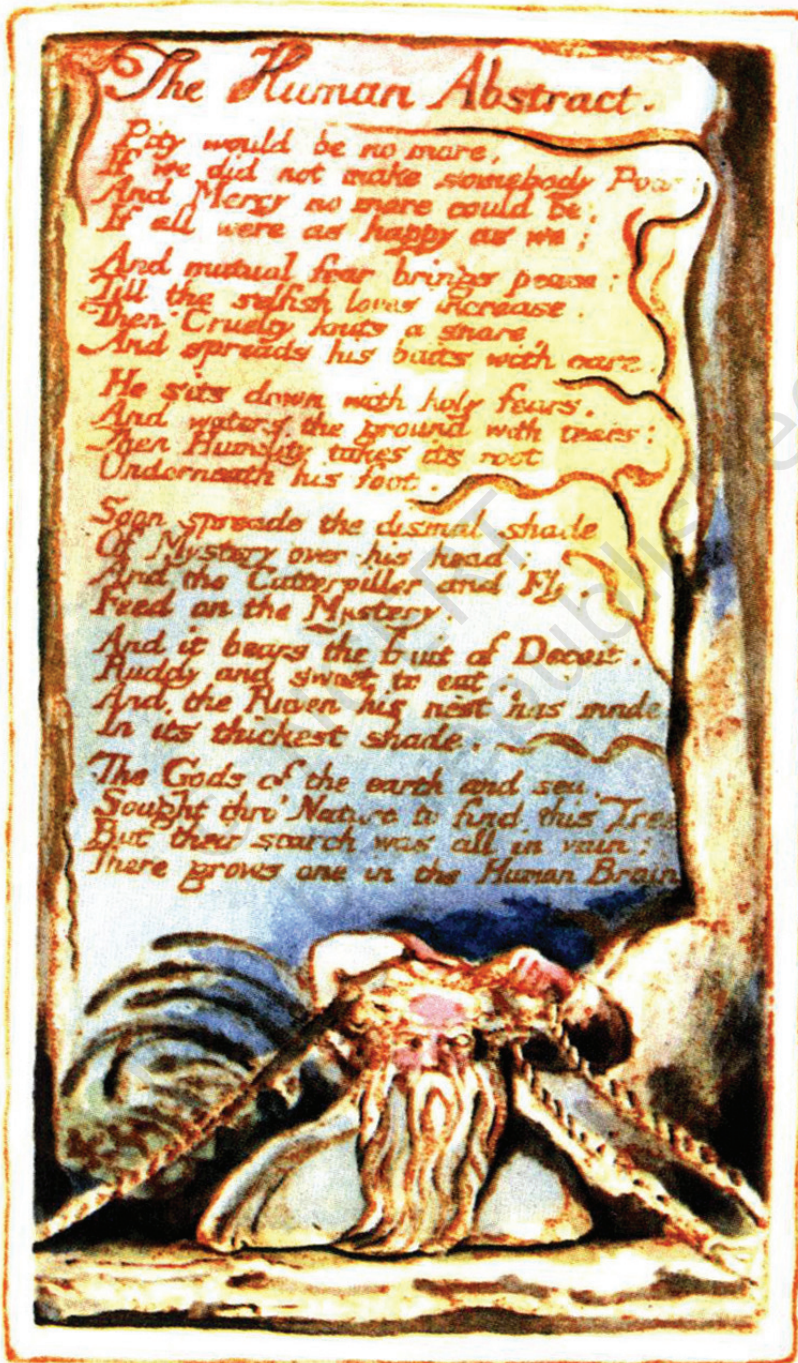 The Human Abstract.
Pity would be no more,
If we did not make somebody Poor:
And Mercy no more could be,
If all were as happy as we;
And mutual fear brings peace:
Till the selfish loves increase.
Then Cruelty knits a snare,
And spreads his baits with care.
He sits down with holy fears,
And waters the ground with tears:
Then Humility takes its root
Underneath his foot.
Soon spreads the dismal shade
Of Mystery over his head;
And the Catterpiller and Fly,
Feed on the Mystery
And it bears the fruit of Deceit,
Ruddy and sweet to eat:
And the Raven his nest has made
In its thickest shade.
The Gods of the earth and sea,
Sought thro' Nature to find this Tree
But their search was all in vain:
There grows one in the Human Brain